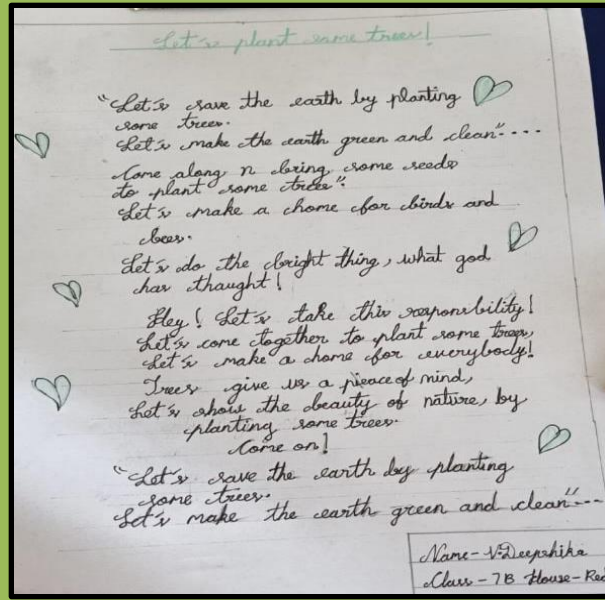 Let's plant some trees!
"Let's save the earth by planting
some trees.
Let's make the earth green and clean"....
Come along n bring some seeds
to plant some trees".
Let's make a home for birds and
bees.
Let's do the bright thing, what god
has thought!
Hey! Let's take this responsibility!
Let's come together to plant some trees,
Let's make a home for everybody!
Trees give us a pieace of mind,
Let's show the beauty of nature, by
planting some trees.
Come on!
"Let's save the earth by planting
some trees.
Let's make the earth green and clean"....
Name - V.Deepshika
Class - 7B House - Red